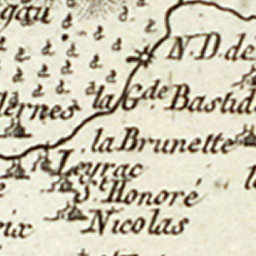 gau
N.D. de
lernes la G.de Bastid
la Brunette
Leyrac
St Honoré
Nicolas
eix